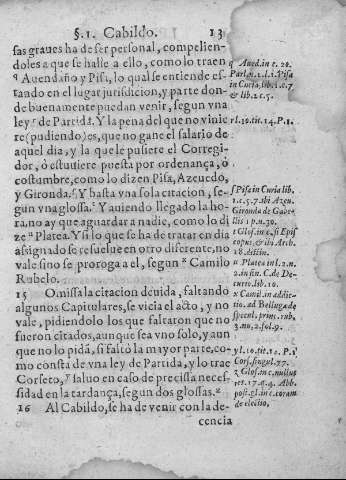 §.1. Cabildo. 13
sas graues ha de ser personal, compelien-
doles a que se halle a ello, como lo traen
q Auendaño y Pisa, lo qual se entiende es-
tando en el lugar jurisdicion, y parte don-
de buenamente puedan venir, segun vna
ley r de Partida. Y la pena del que no vinie
re (pudiendo) es, que no gane el salario de
aquel dia, y la que le pusiere el Corregi-
dor, ò estuuiere puesta por ordenança, ò
costumbre, como lo dizen Pisa, Azeuedo,
y Gironda. s Y basta vna sola citacion, se-
gun vna glossa. t Y auiendo llegado la ho-
ra no ay que aguardar a nadie, como lo di
ze u Platea. Y si lo que se ha de tratar en dia
asignado se resuelue en otro diferente, no
vale sino se proroga a el, segun x Camilo
Rubelo.
15 Omissa la citacion deuida, faltando
algunos Capitulares, se vicia el acto, y no
vale, pidiendolo los que faltaron que no
fueron citados, aunque sea vno solo, y aun
que no lo pidā, si faltò la mayor parte, co-
mo consta de vna ley de Partida, y lo trae
Corseto, y saluo en caso de precissa neces-
sidad en la tardança, segun dos glossas. z
16 Al Cabildo, se ha de venir con la de-
cencia
q Aued. in c. 20.
Parl. p. 1. l. 1. Pisa
in Curia, lib. 1. c. 7
& lib. 2 c. 5.
r l. 10. tit. 14. P. 1.
s Pisa in Curia lib.
1. c. 5. 7. ibi Azeu.
Gironda de Gabe-
llis 1 p. n. 30.
t Glos. in c. si Epis
copus, & ibi Arch.
18. distin.
u Platea in l. 2. n.
2. in fin. C. de De-
curio. lib. 10.
x Camil. in addic-
tio. ad Bellugā de
specul. princ. rub.
3. nu. 2. fol. 9.
y l. 10. tit. 12. P. 1
Cors. singul. 77.
z Glos. in c. nullus
res. 17. q. 4. Abb.
post gl. in c. coram
de electio.